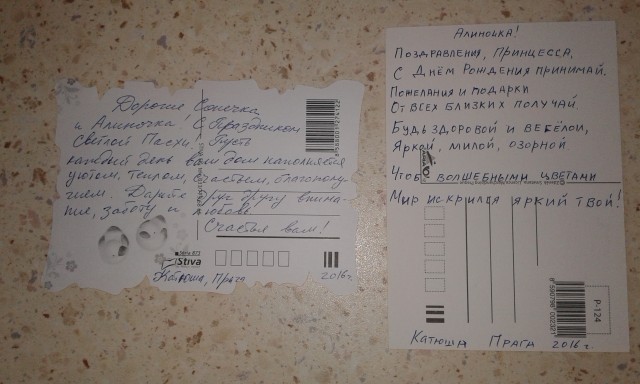 Дорогие Сонечка
и Алиночка! С Праздником
Светлой Пасхи! Пусть
каждый день ваш дом наполняется
уютом, теплом, счастьем, благополу-
чием. Дарите друг другу внима-
ние, заботу и любовь
Счастья вам!
Stiva
Катюша, Прага
2016г.
Алинонька!
Поздравления, Принцесса,
С Днём Рождения принимай,
Пожелания и подарки
От всех близких получай.
Будь здоровой и весёлой,
Яркой, милой, озорной
Чтоб волшебными цветами
Мир искрился яркий твой!
P-124
Катюша Прага 2016г.